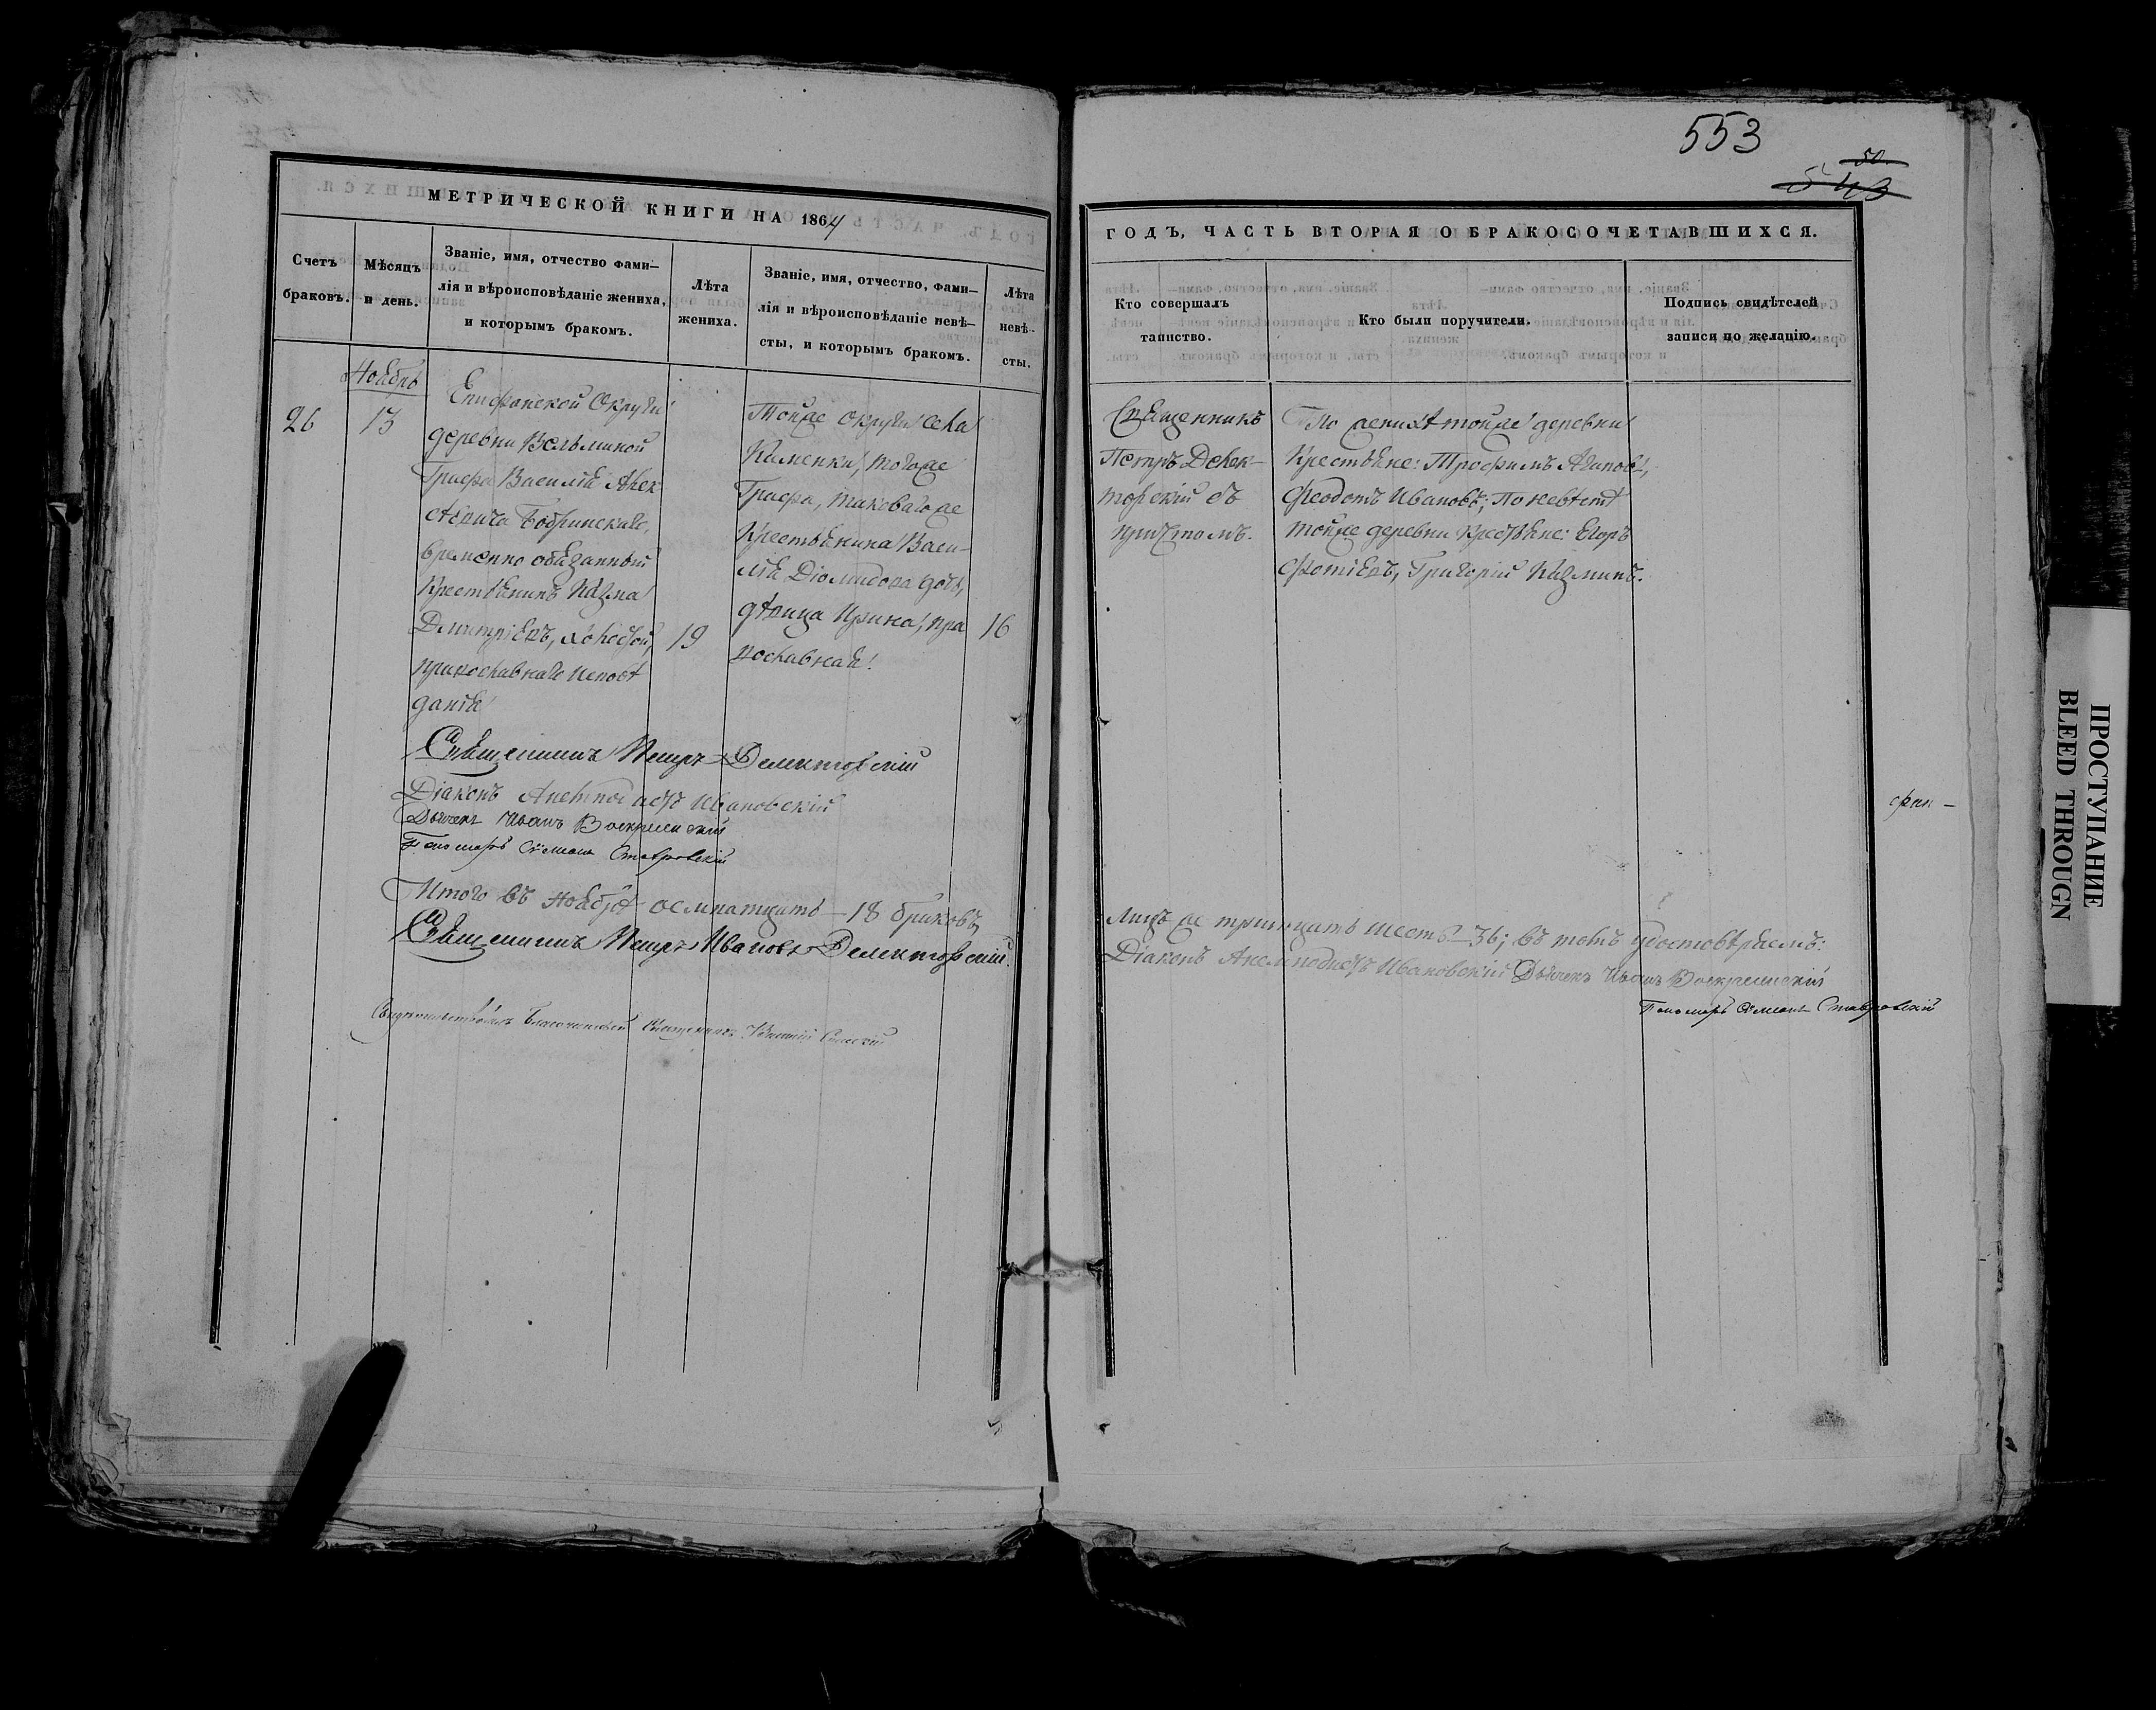 553
50.
543
МЕТРИЧЕСКОЙ КНИГИ НА 1864
Счетъ браковъ.
Мѣсяцъ и день.
Званіе, имя, отчество фами-
лія и вѣроисповѣданіе жениха,
и которымъ бракомъ.
Лѣта жениха.
Званіе, имя, отчество, фами-
лія и вѣроисповѣданіе невѣ-
сты, и которымъ бракомъ.
Лѣта невѣ-
сты.
Ноябрь
26
13
Епифанской Округи
деревни Вельминой
Графа Василія Алек
сѣевича Бобринскаго,
временно обязанный
Крестьянинъ Казма
Димитріевъ, холостой,
православнаго исповѣ
данія
19
Тойже округи села
Каменки, тогоже
Графа, таковагоже
Крестьянина Васи-
лія Діомидова дочь,
дѣвица Ирина, пра
вославная.
16
Священникъ Петръ Делекторскій
Діаконъ Анемподистъ Ивановскій
Дьячекъ Иванъ Воскресенскій
Пономарь Сѵмеонъ Ставровскій
Итого въ Ноябрѣ осмнатцать — 18 браковъ,
Священникъ Петръ Ивановъ Делекторскій.
Свидѣтельствовалъ Благочинный Священникъ
ГОДЪ, ЧАСТЬ ВТОРАЯ О БРАКОСОЧЕТАВШИХСЯ.
Кто совершалъ
таинство.
Кто были поручители.
Подпись свидѣтелей
записи по желанію.
Священникъ
Петръ Делек-
торскій съ
причтомъ.
По женихѣ тойже деревни
Крестьяне: Трофимъ Агаповъ,
Феодотъ Ивановъ; по невѣстѣ
тойже деревни Крестьяне: Егоръ
Фотіевъ, Григорій Казминъ.
Лицъ же тритцать шесть — 36; въ томъ удостовѣряемъ:
Діаконъ Анемподистъ Ивановскій Дьячекъ Иванъ Воскресенскій
Пономарь Сѵмеонъ Ставровскій
фан —
ПРОСТУПАНИЕ
BLEED THROUGN